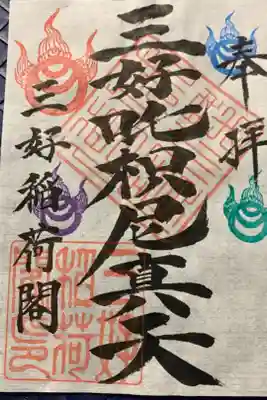 奉拝
三好吒枳尼真天
三好稲荷閣